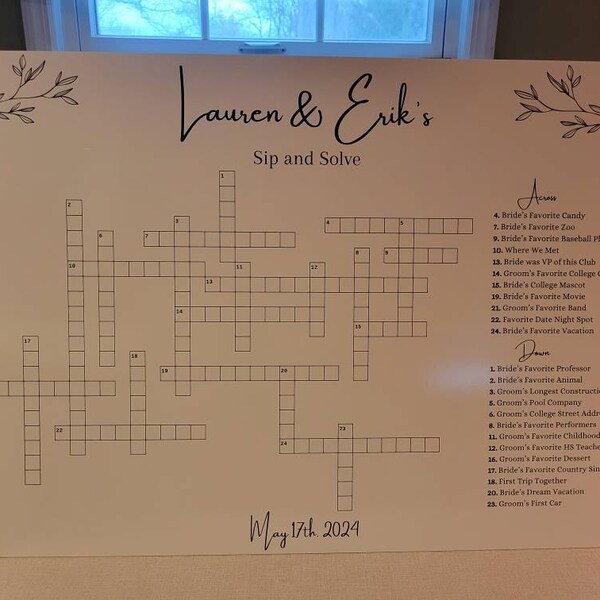 Lauren & Erik's
Sip and Solve
1
2
3
4
5
6
7
8
9
10
11
12
13
14
15
17
18
19
20
22
23
24
Across
4. Bride's Favorite Candy
7. Bride's Favorite Zoo
9. Bride's Favorite Baseball
10. Where We Met
13. Bride was VP of this Club
14. Groom's Favorite College
15. Bride's College Mascot
19. Bride's Favorite Movie
21. Groom's Favorite Band
22. Favorite Date Night Spot
24. Bride's Favorite Vacation
Down
1. Bride's Favorite Professor
2. Bride's Favorite Animal
3. Groom's Longest
5. Groom's Pool Company
6. Groom's College Street
8. Bride's Favorite Performers
11. Groom's Favorite Childhood
12. Groom's Favorite HS
16. Groom's Favorite Dessert
17. Bride's Favorite Country
18. First Trip Together
20. Bride's Dream Vacation
23. Groom's First Car
May 17th, 2024